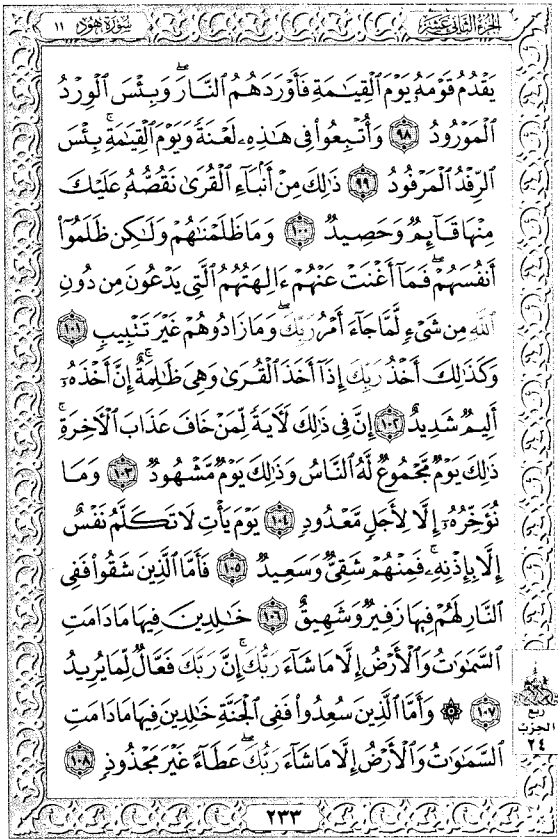 الجزء الثاني عشر
سورة هود ١١
يَقْدُمُ قَوْمَهُۥ يَوْمَ ٱلْقِيَٰمَةِ فَأَوْرَدَهُمُ ٱلنَّارَ ۖ وَبِئْسَ ٱلْوِرْدُ
ٱلْمَوْرُودُ ٩٨ وَأُتْبِعُوا۟ فِى هَٰذِهِۦ لَعْنَةً وَيَوْمَ ٱلْقِيَٰمَةِ ۚ بِئْسَ
ٱلرِّفْدُ ٱلْمَرْفُودُ ٩٩ ذَٰلِكَ مِنْ أَنۢبَآءِ ٱلْقُرَىٰ نَقُصُّهُۥ عَلَيْكَ
مِنْهَا قَآئِمٌ وَحَصِيدٌ ١٠٠ وَمَا ظَلَمْنَٰهُمْ وَلَٰكِن ظَلَمُوٓا۟
أَنفُسَهُمْ ۖ فَمَآ أَغْنَتْ عَنْهُمْ ءَالِهَتُهُمُ ٱلَّتِى يَدْعُونَ مِن دُونِ
ٱللَّهِ مِن شَىْءٍ لَّمَّا جَآءَ أَمْرُ رَبِّكَ ۖ وَمَا زَادُوهُمْ غَيْرَ تَتْبِيبٍ ١٠١
وَكَذَٰلِكَ أَخْذُ رَبِّكَ إِذَآ أَخَذَ ٱلْقُرَىٰ وَهِىَ ظَٰلِمَةٌ ۚ إِنَّ أَخْذَهُۥٓ
أَلِيمٌ شَدِيدٌ ١٠٢ إِنَّ فِى ذَٰلِكَ لَءَايَةً لِّمَنْ خَافَ عَذَابَ ٱلْءَاخِرَةِ ۚ
ذَٰلِكَ يَوْمٌ مَّجْمُوعٌ لَّهُ ٱلنَّاسُ وَذَٰلِكَ يَوْمٌ مَّشْهُودٌ ١٠٣ وَمَا
نُؤَخِّرُهُۥٓ إِلَّا لِأَجَلٍ مَّعْدُودٍ ١٠٤ يَوْمَ يَأْتِ لَا تَكَلَّمُ نَفْسٌ
إِلَّا بِإِذْنِهِۦ ۚ فَمِنْهُمْ شَقِىٌّ وَسَعِيدٌ ١٠٥ فَأَمَّا ٱلَّذِينَ شَقُوا۟ فَفِى
ٱلنَّارِ لَهُمْ فِيهَا زَفِيرٌ وَشَهِيقٌ ١٠٦ خَٰلِدِينَ فِيهَا مَا دَامَتِ
ٱلسَّمَٰوَٰتُ وَٱلْأَرْضُ إِلَّا مَا شَآءَ رَبُّكَ ۚ إِنَّ رَبَّكَ فَعَّالٌ لِّمَا يُرِيدُ
١٠٧ ۞ وَأَمَّا ٱلَّذِينَ سُعِدُوا۟ فَفِى ٱلْجَنَّةِ خَٰلِدِينَ فِيهَا مَا دَامَتِ
ٱلسَّمَٰوَٰتُ وَٱلْأَرْضُ إِلَّا مَا شَآءَ رَبُّكَ ۖ عَطَآءً غَيْرَ مَجْذُوذٍ ١٠٨
ربع
الحزب
٢٤
٢٣٣